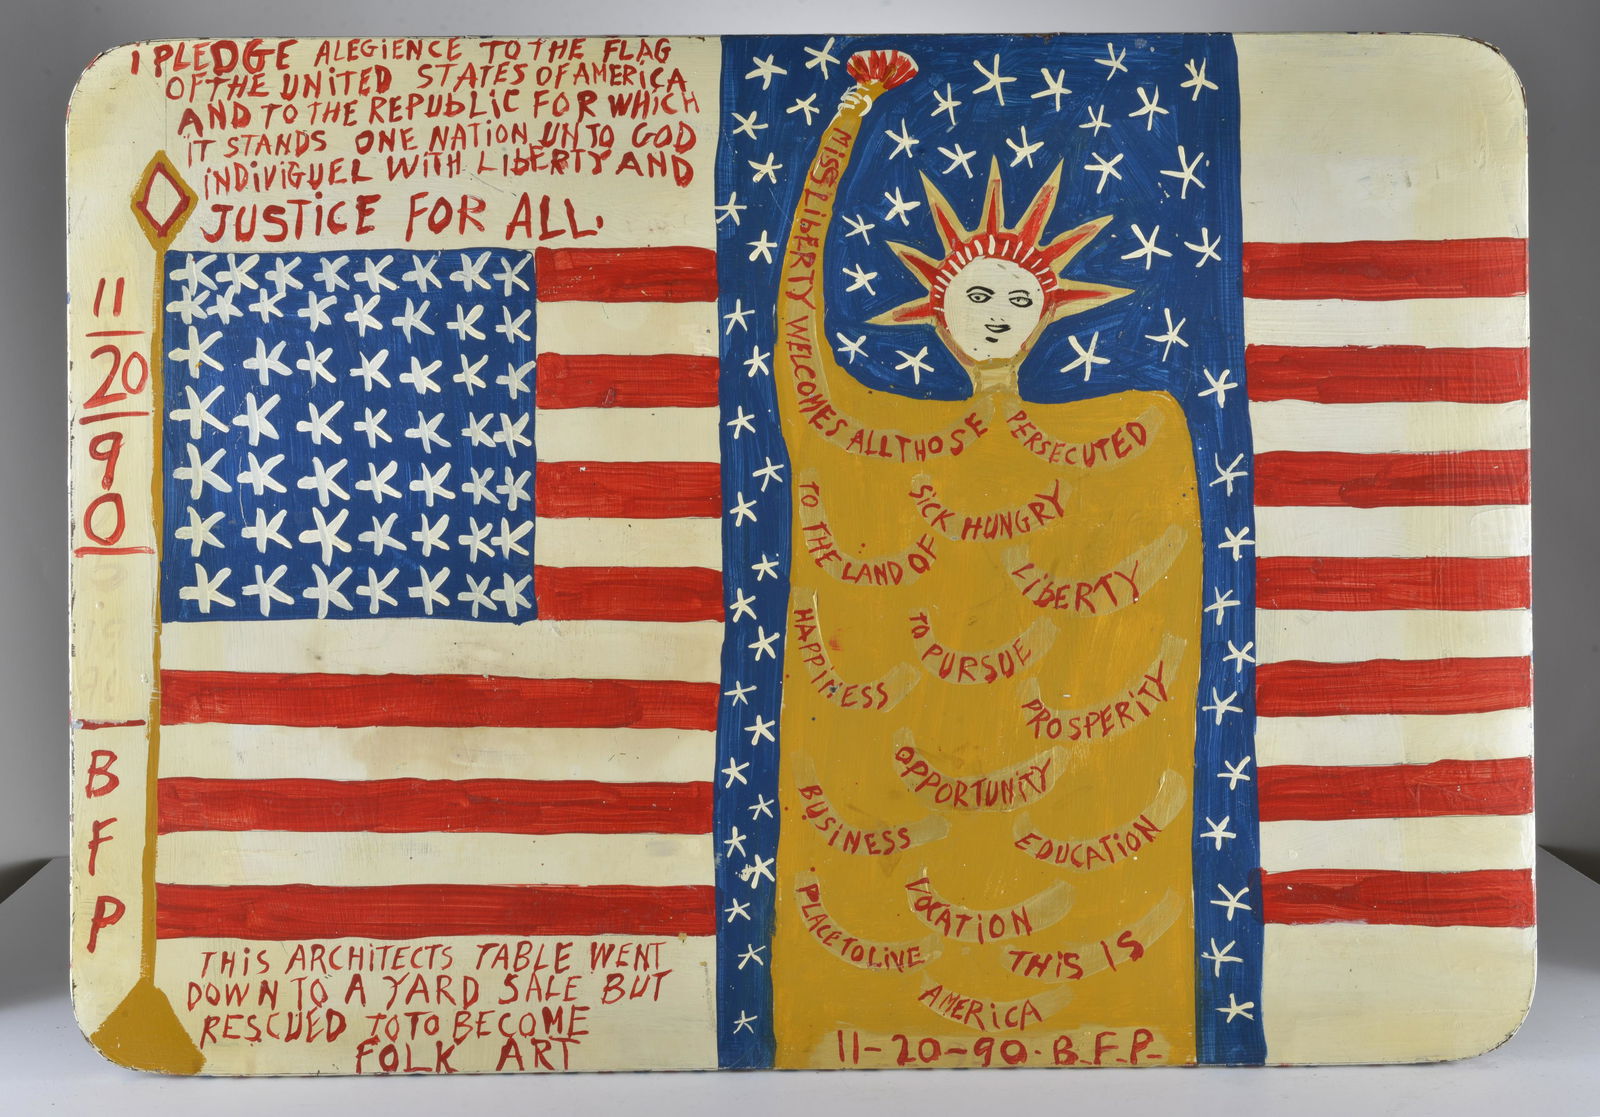 I PLEDGE ALEGIENCE TO THE FLAG
OF THE UNITED STATES OF AMERICA
AND TO THE REPUBLIC FOR WHICH
IT STANDS ONE NATION UNTO GOD
INDIVIGUEL WITH LIBERTY AND
JUSTICE FOR ALL.
11
20
9
0
B
F
P
THIS ARCHITECTS TABLE WENT
DOWN TO A YARD SALE BUT
RESCUED TOTO BECOME
FOLK ART
MISS LIBERTY WELCOMES ALL THOSE
PERSECUTED
SICK HUNGRY
TO THE LAND OF
LIBERTY
TO PURSUE
HAPPINESS
PROSPERITY
OPPORTUNITY
BUSINESS
EDUCATION
VOCATION
PLACE TO LIVE
THIS IS
AMERICA
11-20-90. B.F.P-